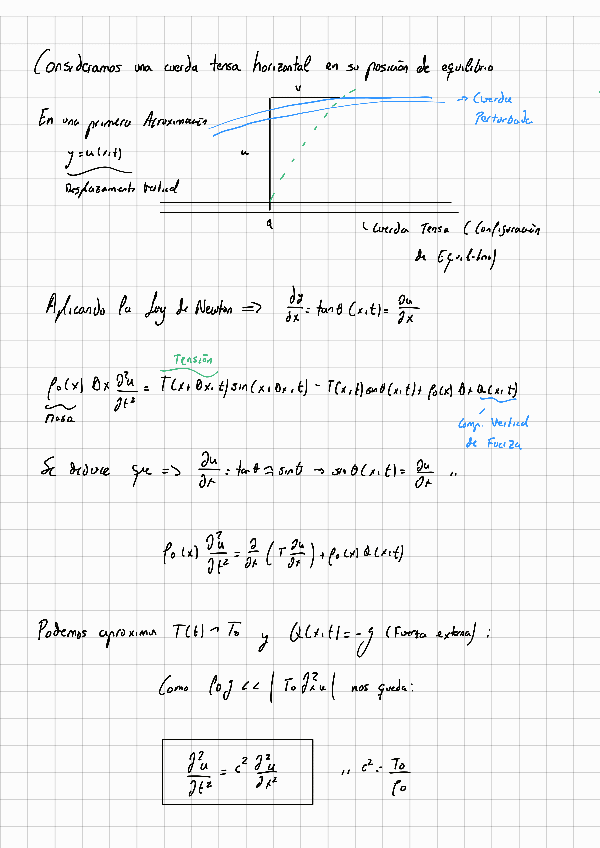 Consideramos una cuerda tensa horizontal en su posición de equilibrio
v
→ Cuerda Perturbada
En una primera Aproximación
y = u(x,t)
u
Desplazamiento Vertical
a
Cuerda Tensa (Configuración
de Equilibrio)
Aplicando la Ley de Newton => ∂y/∂x = tanθ(x,t) = ∂u/∂x
Tensión
ρ₀(x) Δx ∂²u/∂t² = T(x+Δx,t) sin(x+Δx,t) - T(x,t) sinθ(x,t) + ρ₀(x) Δx Q(x,t)
masa
Comp. Vertical
de Fuerza
Se deduce que => ∂u/∂x = tanθ ≈ sinθ → sinθ(x,t) = ∂u/∂x ,,
ρ₀(x) ∂²u/∂t² = ∂/∂x (T ∂u/∂x) + ρ₀(x) Q(x,t)
Podemos aproximar T(t) ~ T₀ y Q(x,t) = -g (Fuerza externa) :
Como ρ₀g << |T₀ ∂²ₓu| nos queda:
∂²u/∂t² = c² ∂²u/∂x² ,, c² = T₀/ρ₀